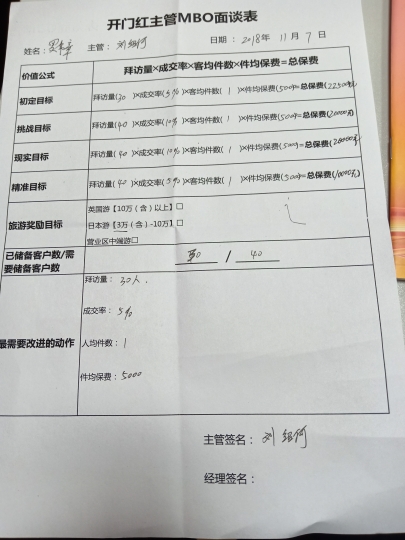 开门红主管MBO面谈表
姓名: 主管: 刘 日期: 2018年11月7日
价值公式 拜访量×成交率×客均件数×件均保费=总保费
初定目标 拜访量(30)×成交率(5%)×客均件数(1)×件均保费(5000)=总保费
挑战目标 拜访量(40)×成交率(10%)×客均件数(1)×件均保费(5000)=总保费(20000元)
现实目标 拜访量(40)×成交率(10%)×客均件数(1)×件均保费(5000)=总保费(20000元)
精准目标 拜访量(40)×成交率(5%)×客均件数(1)×件均保费(5000)=总保费(10000元)
旅游奖励目标
英国游【10万(含)以上】□
日本游【3万(含)-10万】□
营业区中端游□
已储备客户数/需要储备客户数 30 / 40
最需要改进的动作
拜访量:30人.
成交率:5%
人均件数:1
件均保费:5000
主管签名: 刘
经理签名: